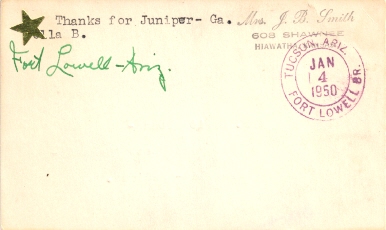 Thanks for Juniper- Ga.
lla B.
Mrs. J. B. Smith
608 SHAWNEE
HIAWATH
Fort Lowell-Ariz.
TUCSON, ARIZ.
JAN
4
1950
FORT LOWELL BR.